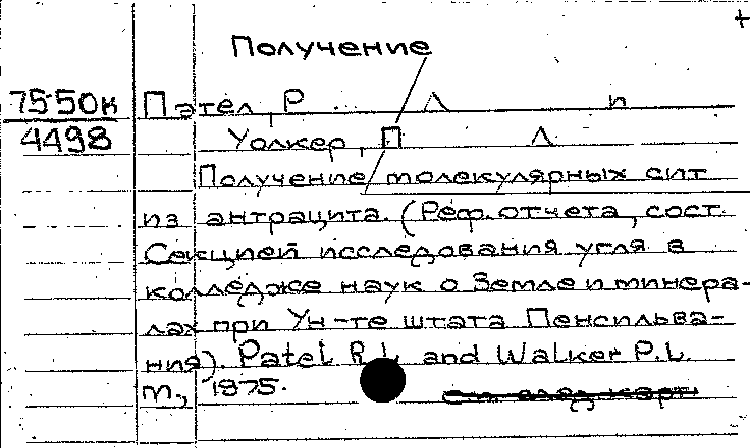 +
Получение
75-50к Пэтел, Р ... Л п
4498 Уолкер, П Л
Получение молекулярных сит
из антрацита. (Реф. отчета, сост.
Секцией исследования угля в
колледже наук о Земле и минера-
лах при Ун-те штата Пенсильва-
ния). Patel R.L. and Walker P.L.
м., 1875.